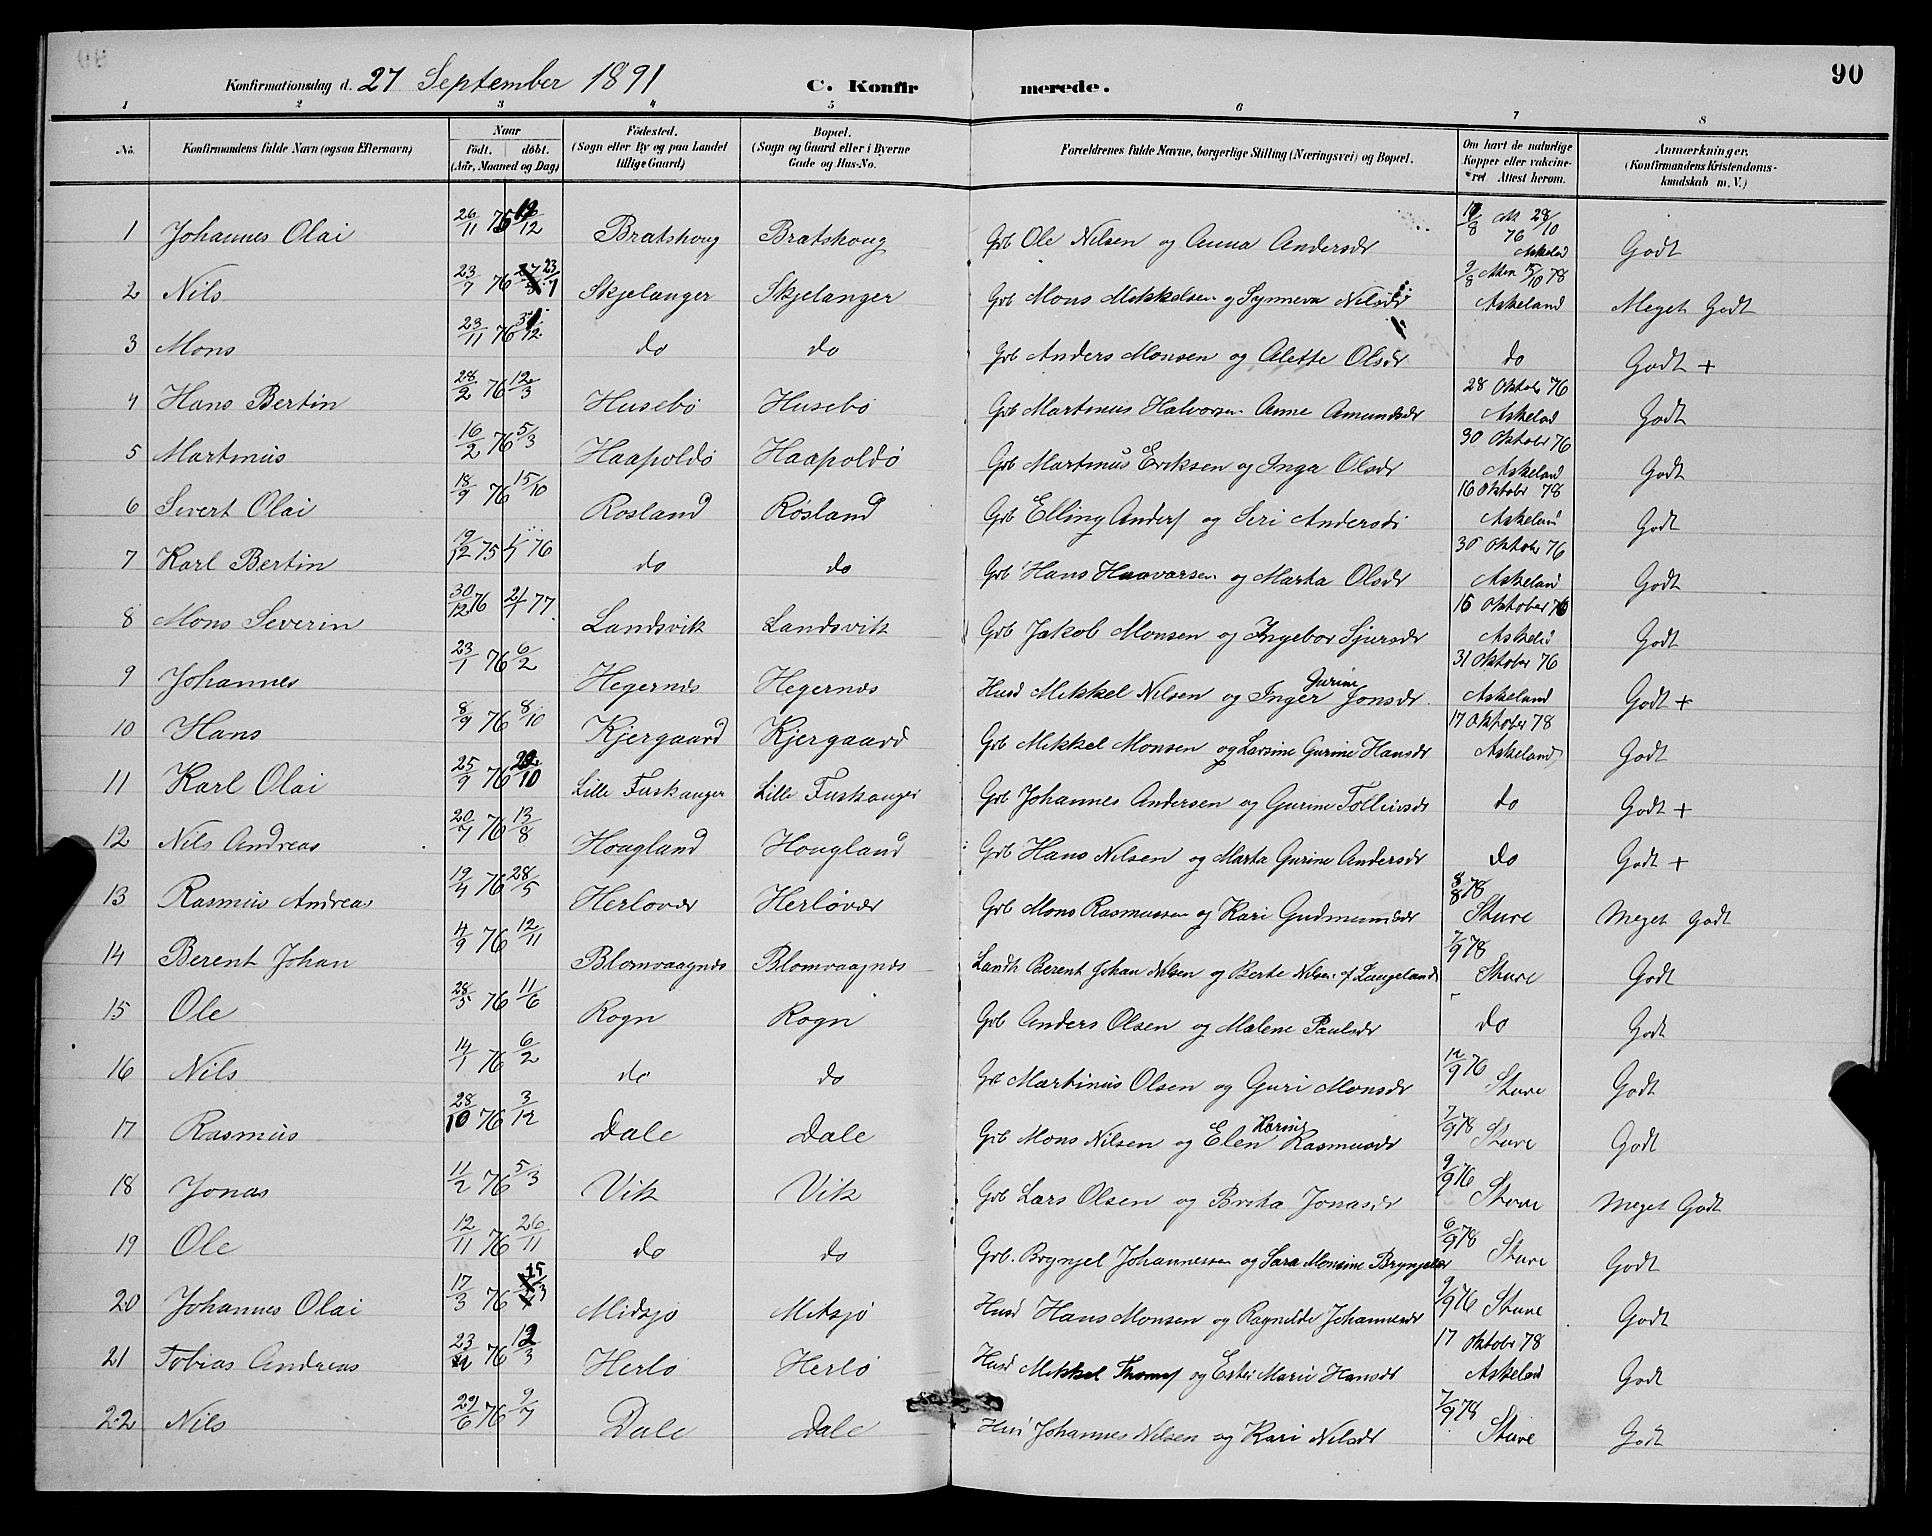 Konfirmationsdag d. 27 September 1891 C. Konfirmerede. 90
1 2 3 4 5 6 7 8
No. Konfirmandens fulde Navn (ogsaa Efternavn) Naar födt. döbt. (Aar, Maaned og Dag) Födested. (Sogn eller By og paa Landet tillige Gaard) Bopæl. (Sogn og Gaard eller i Byerne Gade og Hus-No. Forældrenes fulde Navne, borgerlige Stilling (Næringsvei) og Bopæl. Om havt de naturlige Kopper eller vakcineret Attest herom. Anmærkninger. (Konfirmandens Kristendomskundskab m. V.)
1 Johannes Olai 26/11 75 /12 Bratshoug Bratshoug Grb Ole Nilsen og Anna Andersdr 76 28/10 Askelad Godt
2 Nils 23/7 76 Skjelanger Skjelanger Grb Mons Mikkelsen og Synneva Nilsdr 9/8 /10 78 Askeland Meget Godt
3 Mons 23/11 76 /12 do do Grb Anders Monsen og Alette Olsdr do Godt +
4 Hans Bertin 28/2 76 12/3 Husebö Husebö Grb Martinus Halvorsen Anne Amundsdr 28 Oktobr 76 Askelad Godt
5 Martinus 16/2 76 5/3 Haapoldö Haapoldö Grb Martinus Eriksen og Inga Olsdr 30 Oktober 76 Askeland Godt
6 Sivert Olai 18/9 76 15/10 Rosland Røsland Grb Elling Anders og Seri Andersdr 16 Oktobr 78 Askeland Godt
7 Karl Bertin 19/12 75 76 do do Grb Hans Haavarsen og Marta Olsdr 30 Oktobr 76 Askeland Godt
8 Mons Severin 30/12 76 21/1 77 Landsvik Landsvik Grb Jakob Monsen og Ingebor Sjursdr 16 Oktober 76 Askeld Godt
9 Johannes 23/1 76 6/2 Hegernes Hegernes Husd Mikkel Nilsen og Inger Gurine Jonsdr. 31 Oktober 76 Askeland Godt +
10 Hans 8/9 76 8/10 Kjergaard Kjergaard Grb Mikkel Monsen og Larsine Gurine Hansdr 17 Oktober 78 Askeland Godt
11 Karl Olai 25/9 76 /10 Lille Fuskanger Lille Fuskanger Grb Johannes Andersen og Gurine Tolleivsdr do Godt +
12 Nils Andreas 20/7 76 13/8 Hougland Hougland Grb Hans Nilsen og Marta Gurine Andersdr do Godt +
13 Rasmus Andreas 19/4 76 28/5 Herlövær Herlövær Grb Mons Rasmussen og Kari Gudmunsdr 8/8 78 Sture Meget Godt
14 Berent Johan 4/9 76 12/11 Blomvaagnes Blomvaagnes Landh Berent Johan Nilsen og Berte Nilsen af Lungeland 7/9 78 Sture Godt
15 Ole 28/5 76 11/6 Rogn Rogn Grb Anders Olsen og Malene Paulsdr do Godt
16 Nils 14/1 76 6/2 do do Grb Martinus Olsen og Guri Monsdr 12/9 76 Sture Godt
17 Rasmus 28/10 76 3/12 Dale Dale Grb Mons Nilsen og Elen Karine Rasmusdr 7/9 78 Sture Godt
18 Jonas 11/2 76 5/3 Vik Vik Grb Lars Olsen og Brita Jonasdr 9/9 76 Sture Meget Godt
19 Ole 12/11 76 26/11 do do Grb. Brynjel Johannessen og Sara Monsine Brynjelsdr 6/9 78 Sture Godt
20 Johannes Olai 17/3 76 Midsjö Mitsjö Husd Hans Monsen og Ragnilde Johannesdr 9/9 76 Sture Godt
21 Tobias Andreas 23/ 76 12/3 Herlö Herlö Husd Mikkel Thoms og Ester Marie Hansdr 17 Oktobr 78 Askelad Godt
22 Nils 29/6 76 9/7 Dale Dale Husd Johannes Nilsen og Kari Nilsdr 7/9 78 Sture Godt